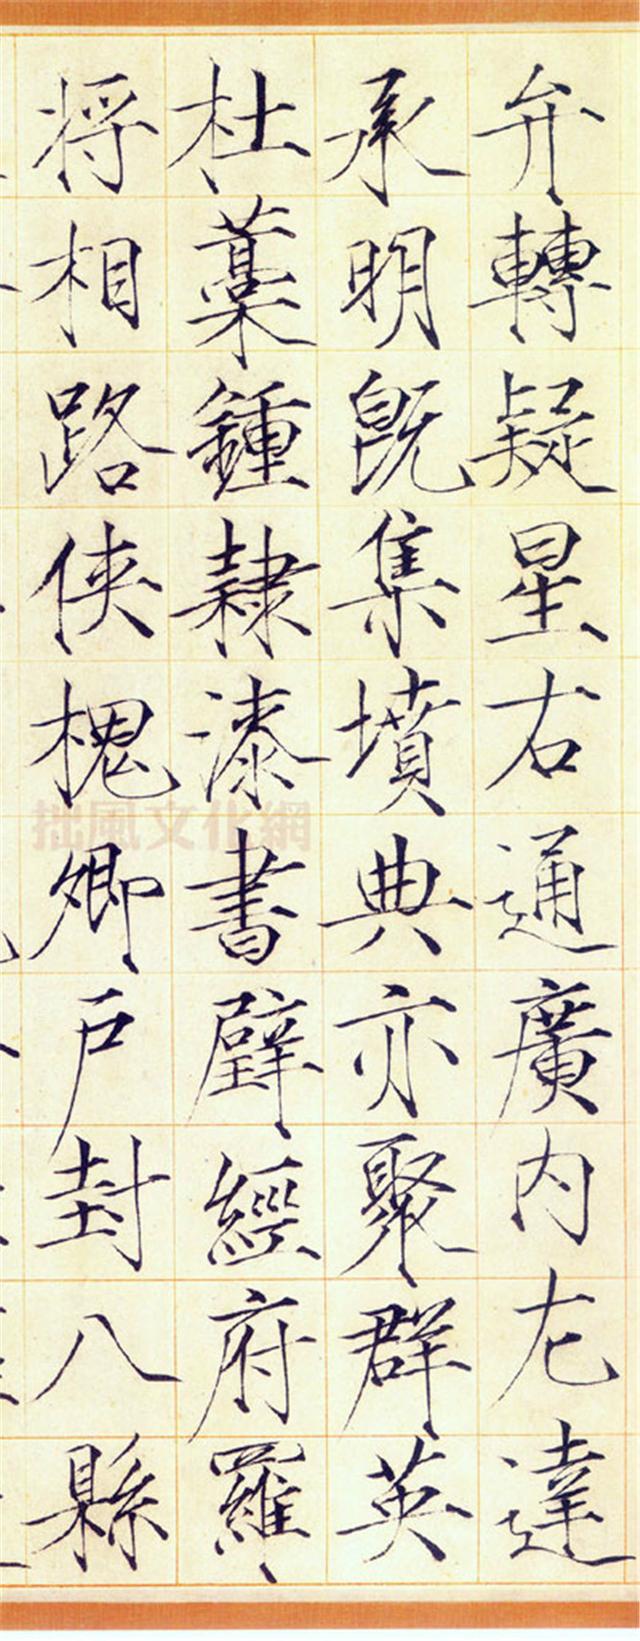 弁轉疑星右通廣内左達
承明既集墳典亦聚群英
杜藁鍾隸漆書壁經府羅
将相路俠槐卿戶封八縣
拙風文化網